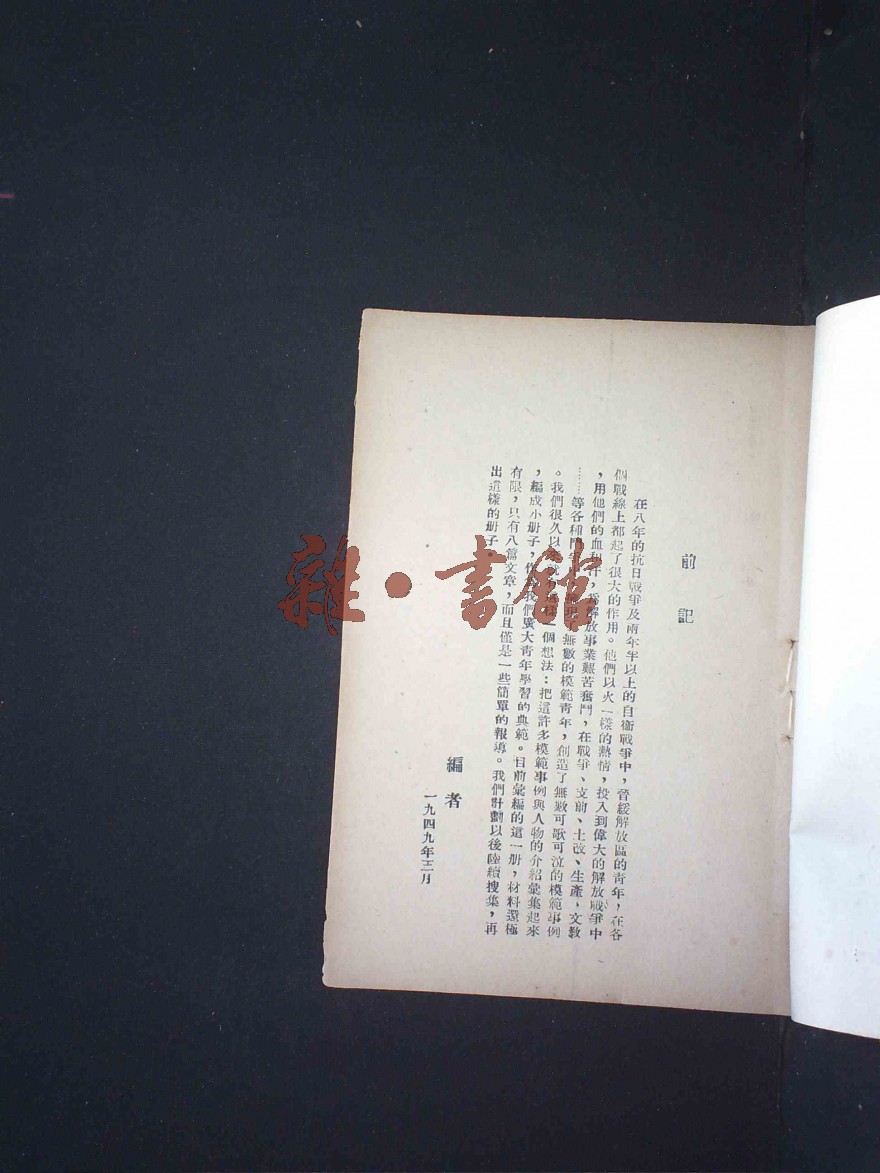 前記
在八年的抗日戰爭及兩年半以上的自衛戰爭中，晉綏解放區的青年，在各
個戰線上都起了很大的作用。他們以火一樣的熱情，投入到偉大的解放戰爭中
，用他們的血和汗，爲解放事業艱苦奮鬥，在戰爭、支前、土改、生產，文教
……等各種鬥爭無數的模範靑年，創造了無數可歌可泣的模範事例
。我們很久以一個想法：把這許多模範事例與人物的介紹彙集起來
，編成小册子，我們廣大青年學習的典範。目前彙編的這一册，材料還極
有限，只有八篇文章，而且僅是一些簡單的報導。我們計劃以後陸續搜集，再
出這樣的册子
編者
一九四九年三月
雜·書館